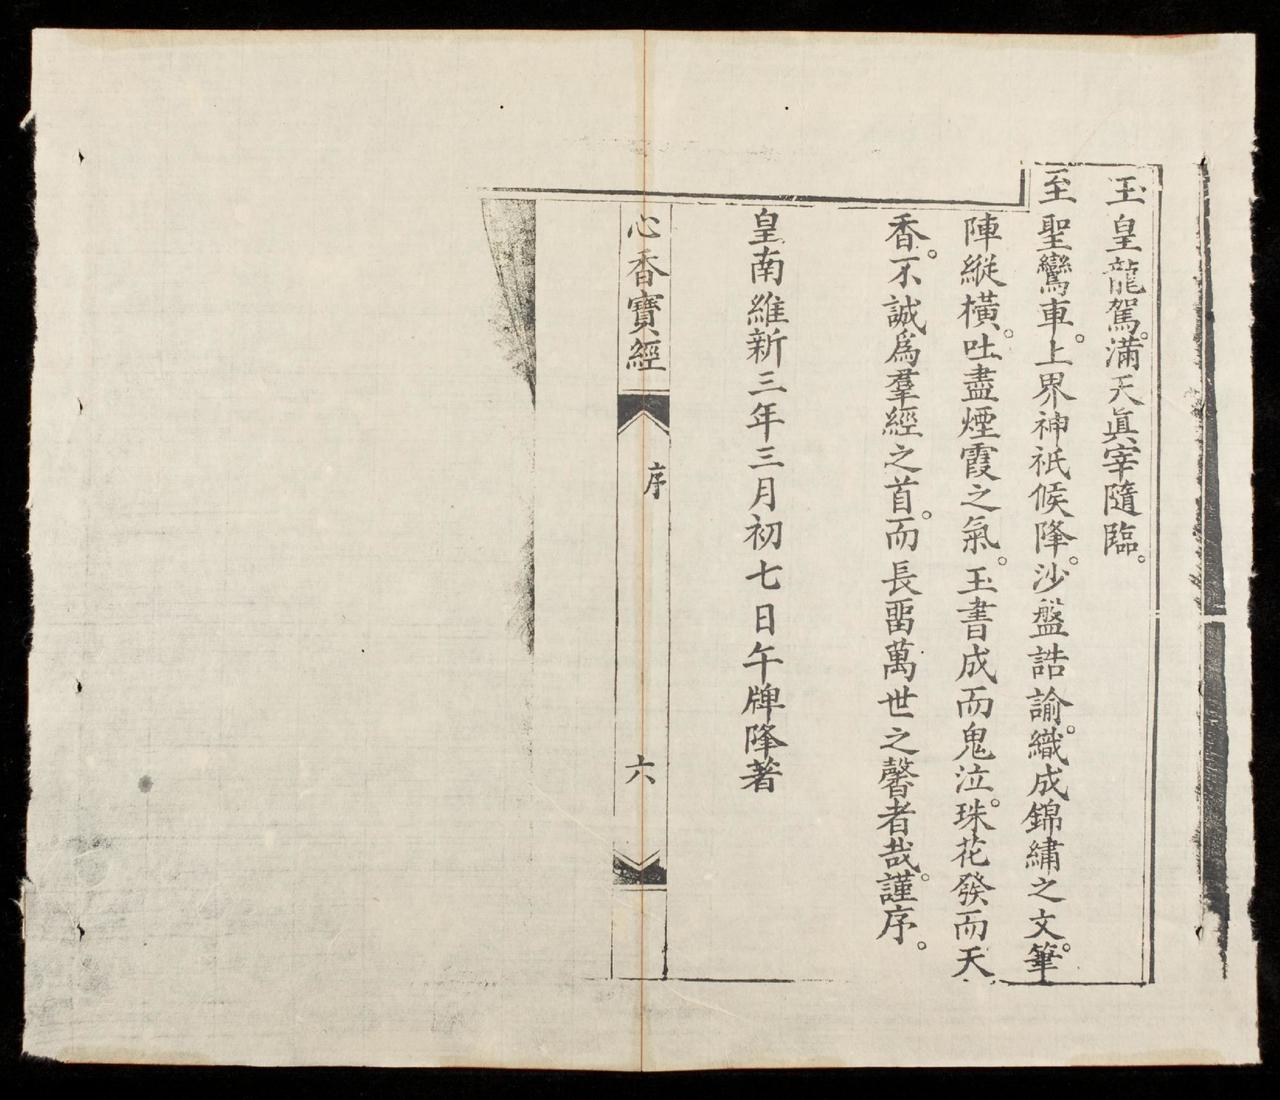 玉皇龍駕。滿天眞宰隨臨。
至聖鸞車。上界神祇候降。沙盤誥諭。織成錦繡之文。筆
陣縱橫。吐盡煙霞之氣。玉書成而鬼泣。珠花發而天
香。不誠爲羣經之首。而長畱萬世之馨者哉。謹序。
皇南維新三年三月初七日午牌降著
心香寶經
序
六